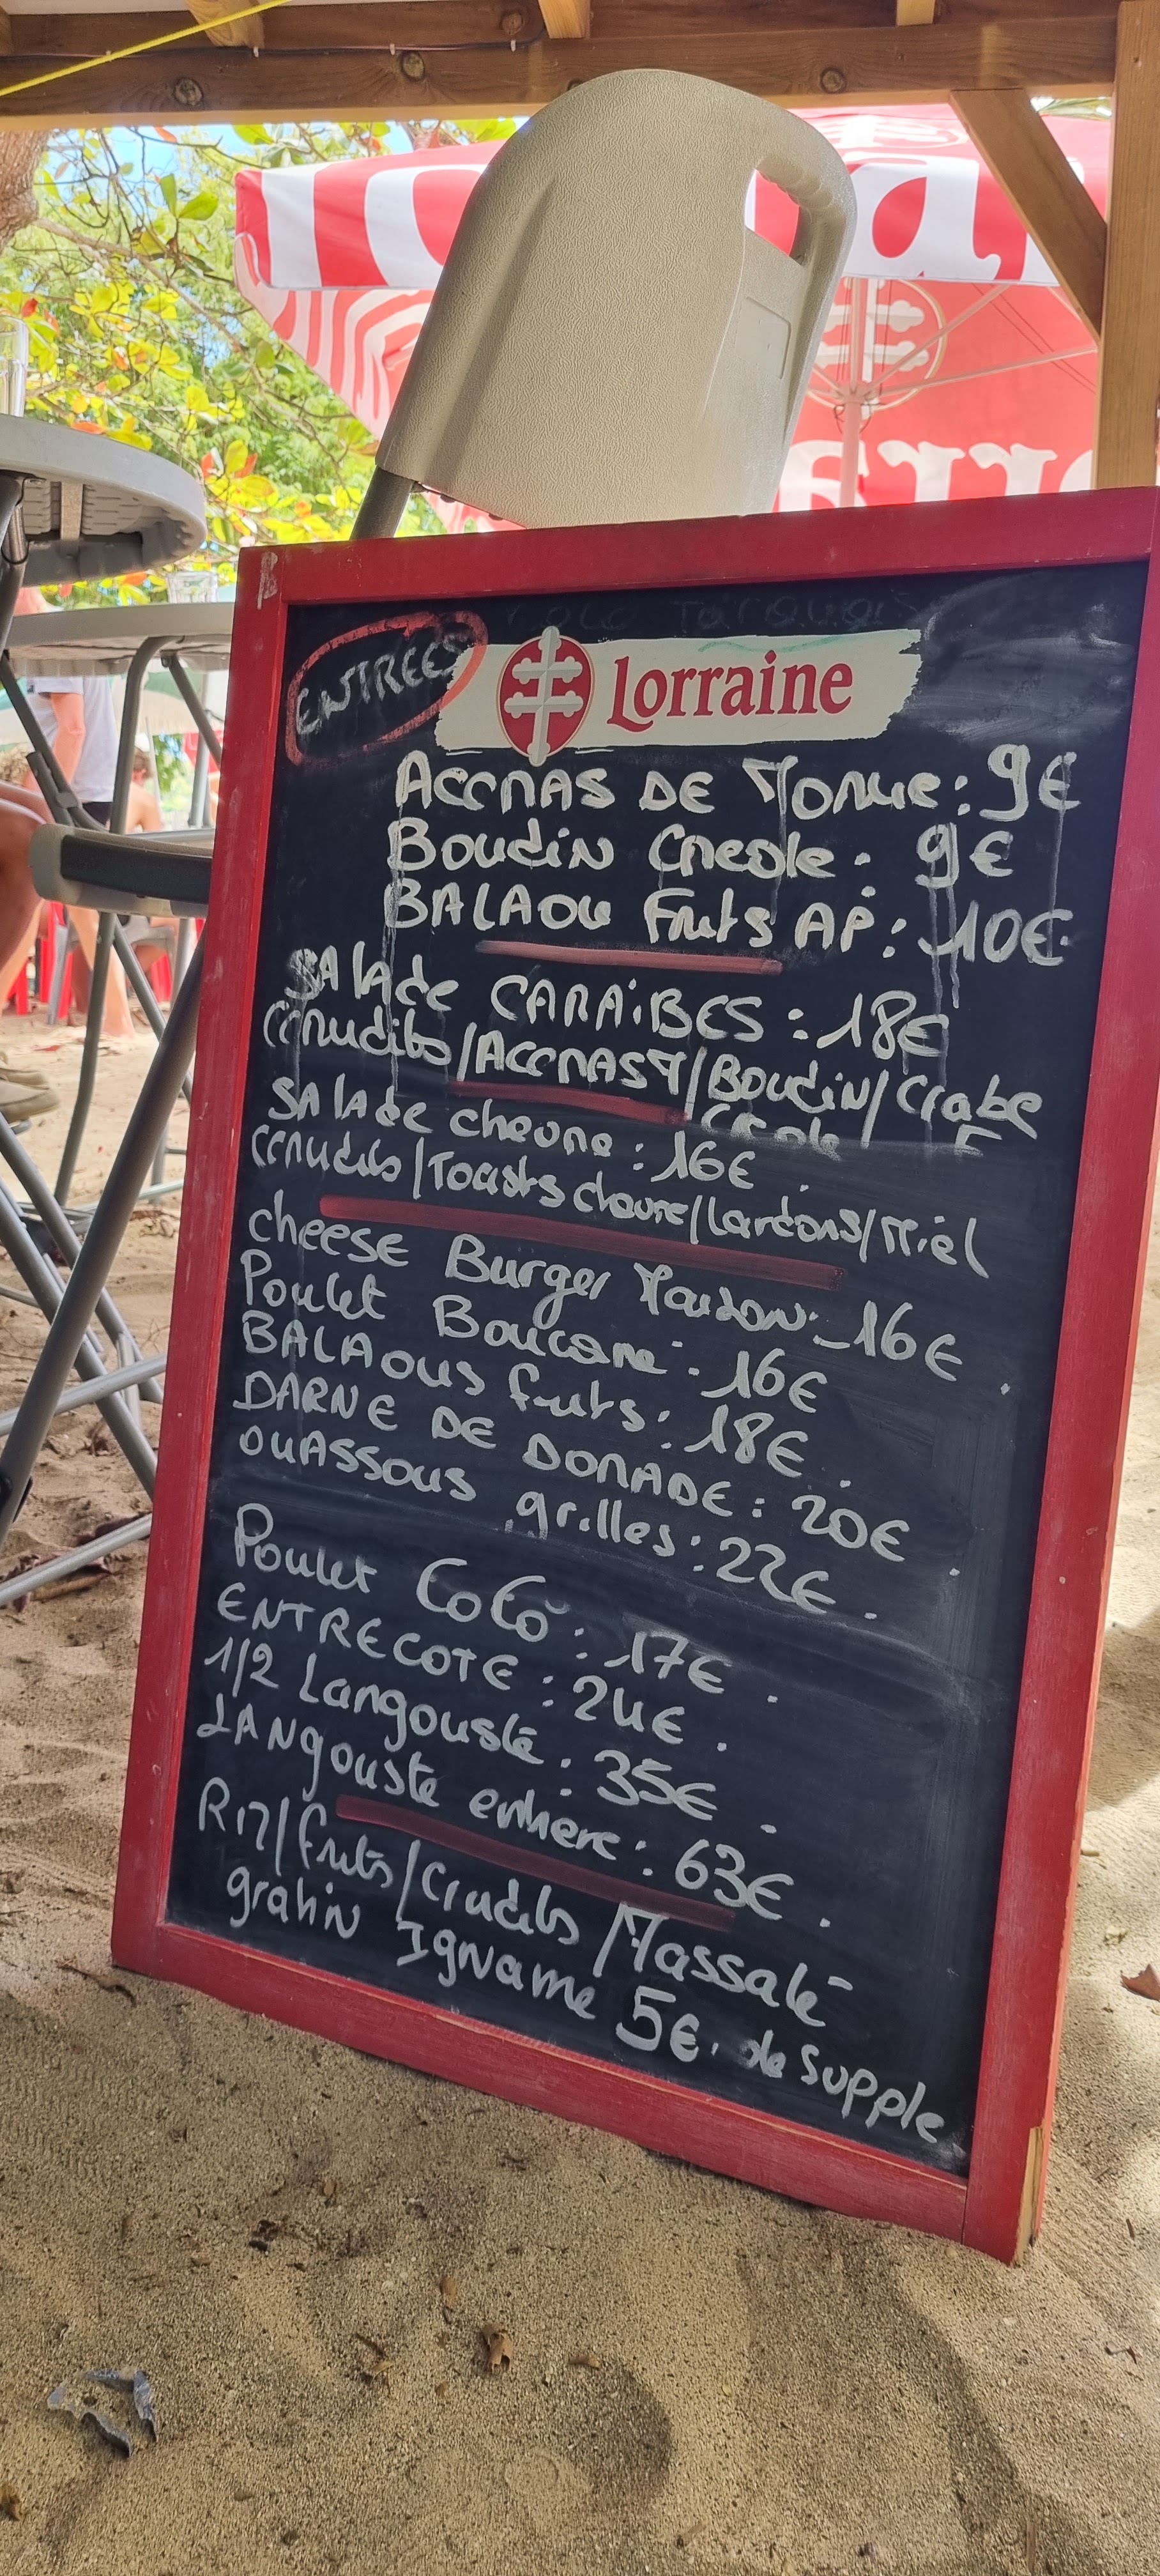 ENTRÉES
Lorraine
ACCRAS DE MORUE : 9€
BOUDIN CREOLE : 9€
BALAOU FRITS AP : 10€
SALADE CARAIBES : 18€
CRUDITÉS/ACCRAS M/BOUDIN/CRABE
CREOLE
SALADE CHEVRE : 16€
CRUDITÉS/TOASTS CHEVRE/LARDONS/MIEL
CHEESE BURGER MAISON : 16€
POULET BOUCANÉ : 16€
BALAOUS FRITS : 18€
DARNE DE DORADE : 20€
OUASSOUS GRILLES : 22€
POULET COCO : 17€
ENTRECOTE : 24€
1/2 LANGOUSTE : 35€
LANGOUSTE ENTIERE : 63€
RIZ/FRITES/CRUDITÉS/MASSALÉ
GRATIN IGNAME 5€ DE SUPPLE